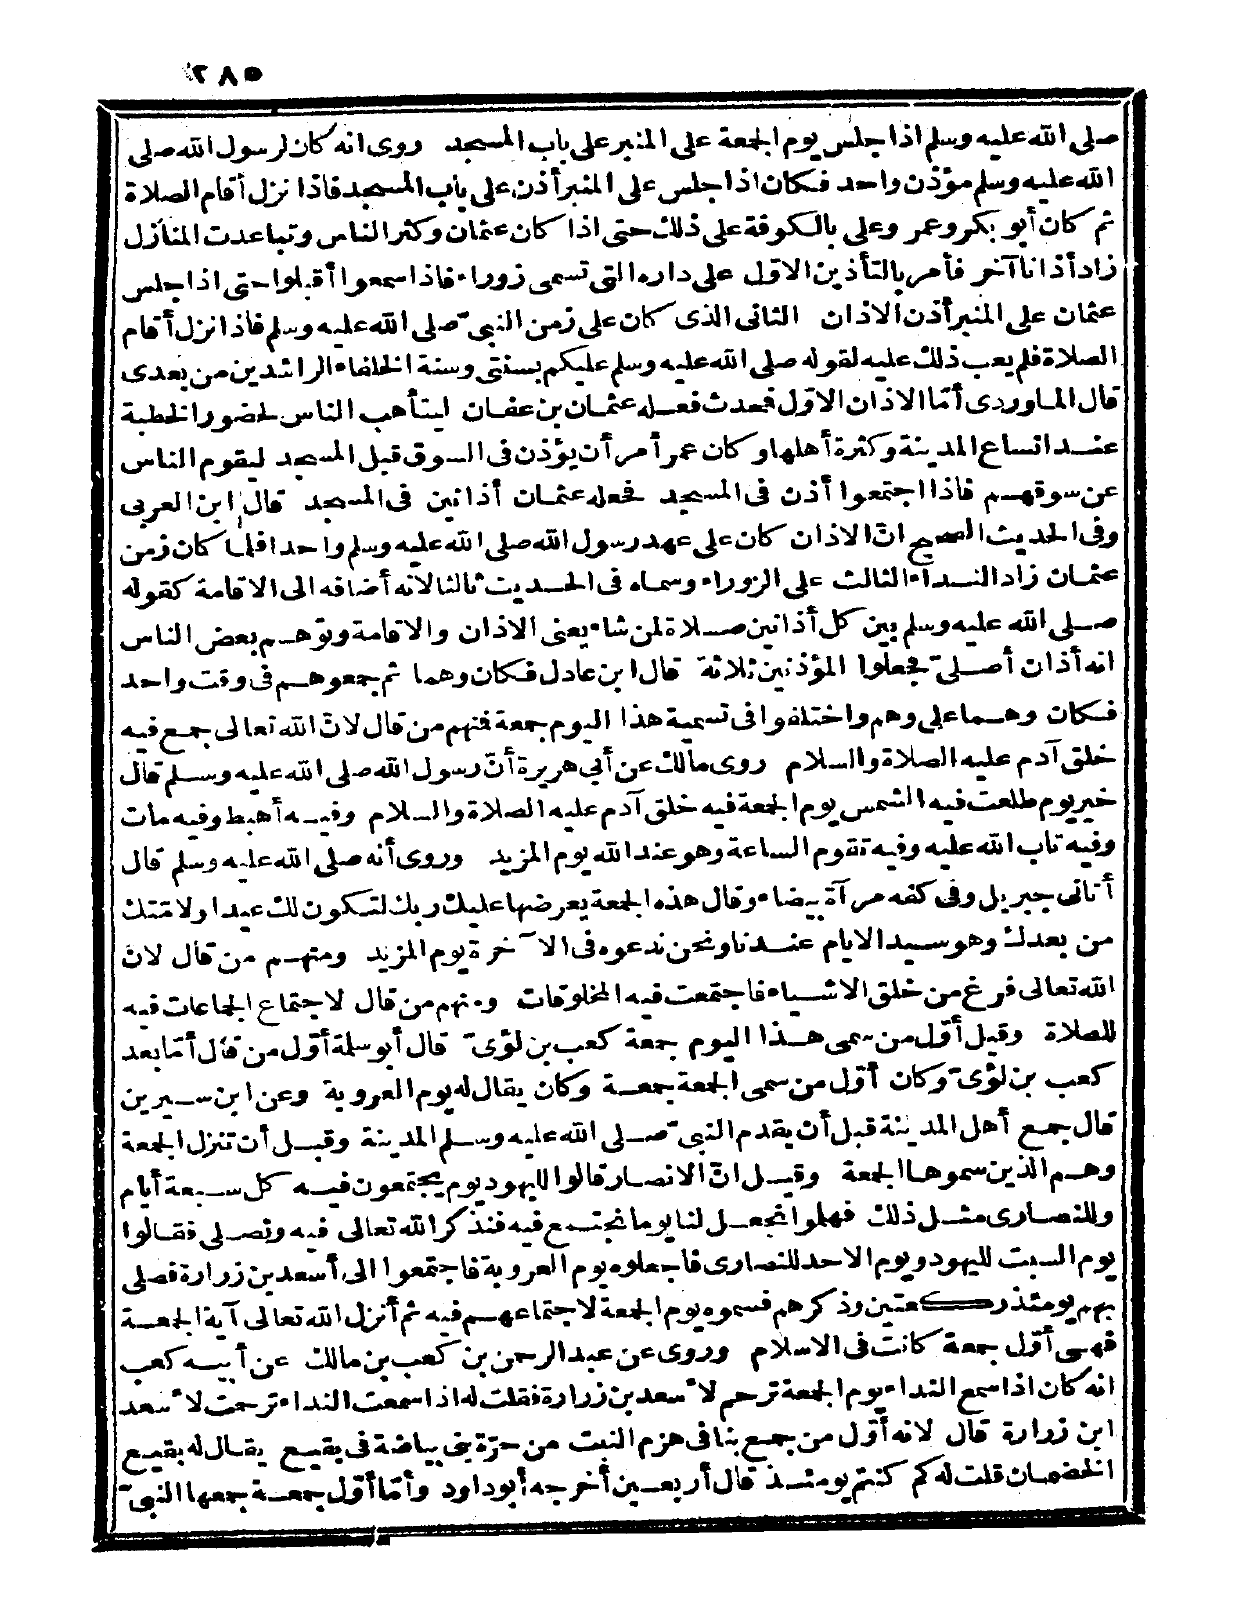 ٢٨٥
صلى الله عليه وسلم اذا جلس يوم الجمعة على المنبر على باب المسجد روى انه كان لرسول الله صلى
الله عليه وسلم مؤذن واحد فكان اذا جلس على المنبر أذن على باب المسجد فاذا نزل أقام الصلاة
ثم كان أبو بكر وعمر وعلى بالكوفة على ذلك حتى اذا كان عثمان وكثر الناس وتباعدت المنازل
زاد أذانا آخر فأمر بالتأذين الاوّل على داره التى تسمى زوراء فاذا سمعوا أقبلوا حتى اذا جلس
عثمان على المنبر أذن الاذان الثانى الذى كان على زمن النبىّ صلى الله عليه وسلم فاذا نزل أقام
الصلاة فلم يعب ذلك عليه لقوله صلى الله عليه وسلم عليكم بسنتى وسنة الخلفاء الراشدين من بعدى
قال الماوردى أمّا الاذان الاوّل فحدث فعله عثمان بن عفان ليتأهب الناس لحضور الخطبة
عند اتساع المدينة وكثرة أهلها وكان عمر أمر أن يؤذن فى السوق قبل المسجد ليقوم الناس
عن سوقهم فاذا اجتمعوا أذن فى المسجد فجعله عثمان أذانين فى المسجد قال ابن العربى
وفى الحديث الصحيح انّ الاذان كان على عهد رسول الله صلى الله عليه وسلم واحدا فلما كان زمن
عثمان زاد النداء الثالث على الزوراء وسماه فى الحديث ثالثا لانه أضافه الى الاقامة كقوله
صلى الله عليه وسلم بين كل أذانين صلاة لمن شاء يعنى الاذان والاقامة وتوّهم بعض الناس
انه أذان أصلىّ فجعلوا المؤذنين ثلاثة قال ابن عادل فكان وهما ثم جمعوهم فى وقت واحد
فكان وهما على وهم واختلفوا فى تسمية هذا اليوم جمعة فمنهم من قال لانّ الله تعالى جمع فيه
خلق آدم عليه الصلاة والسلام روى مالك عن أبى هريرة أنّ رسول الله صلى الله عليه وسلم قال
خير يوم طلعت فيه الشمس يوم الجمعة فيه خلق آدم عليه الصلاة والسلام وفيه أهبط وفيه مات
وفيه تاب الله عليه وفيه تقوم الساعة وهو عند الله يوم المزيد وروى أنه صلى الله عليه وسلم قال
أتانى جبريل وفى كفه مرآة بيضاء وقال هذه الجمعة يعرضها عليك ربك لتكون لك عيدا ولامّتك
من بعدك وهو سيد الايام عندنا ونحن ندعوه فى الآخرة يوم المزيد ومنهم من قال لانّ
الله تعالى فرغ من خلق الاشياء فاجتمعت فيه المخلوقات ومنهم من قال لاجتماع الجماعات فيه
للصلاة وقيل أوّل من سمى هذا اليوم جمعة كعب بن لؤىّ قال أبو سلة أوّل من قال أمّا بعد
كعب بن لؤىّ وكان أوّل من سمى الجمعة جمعة وكان يقال له يوم العروبة وعن ابن سيرين
قال جمع أهل المدينة قبل أن يقدم النبىّ صلى الله عليه وسلم المدينة وقبل أن تنزل الجمعة
وهم الذين سموها الجمعة وقيل انّ الانصار قالوا لليهود يوم يجتمعون فيه كل سبعة أيام
وللنصارى مثل ذلك فهلموا نجعل لنا يوما نجتمع فيه فنذكر الله تعالى فيه ونصلى فقالوا
يوم السبت لليهود ويوم الاحد للنصارى فاجعلوه يوم العروبة فاجتمعوا الى أسعد بن زرارة فصلى
بهم يومئذ ركعتين وذكرهم فسموه يوم الجمعة لاجتماعهم فيه ثم أنزل الله تعالى آية الجمعة
فهى أوّل جمعة كانت فى الاسلام وروى عن عبد الرحمن بن كعب بن مالك عن أبيه كعب
انه كان اذا سمع النداء يوم الجمعة ترحم لأسعد بن زرارة فقلت له اذا سمعت النداء ترحمت لأسعد
ابن زرارة قال لانه أوّل من جمع بنا فى هزم النبت من حرّة بنى بياضة فى بقيع يقال له بقيع
الخضمان قلت له كم كنتم يومئذ قال أربعين أخرجه أبو داود وأمّا أوّل جمعة جمعها النبىّ